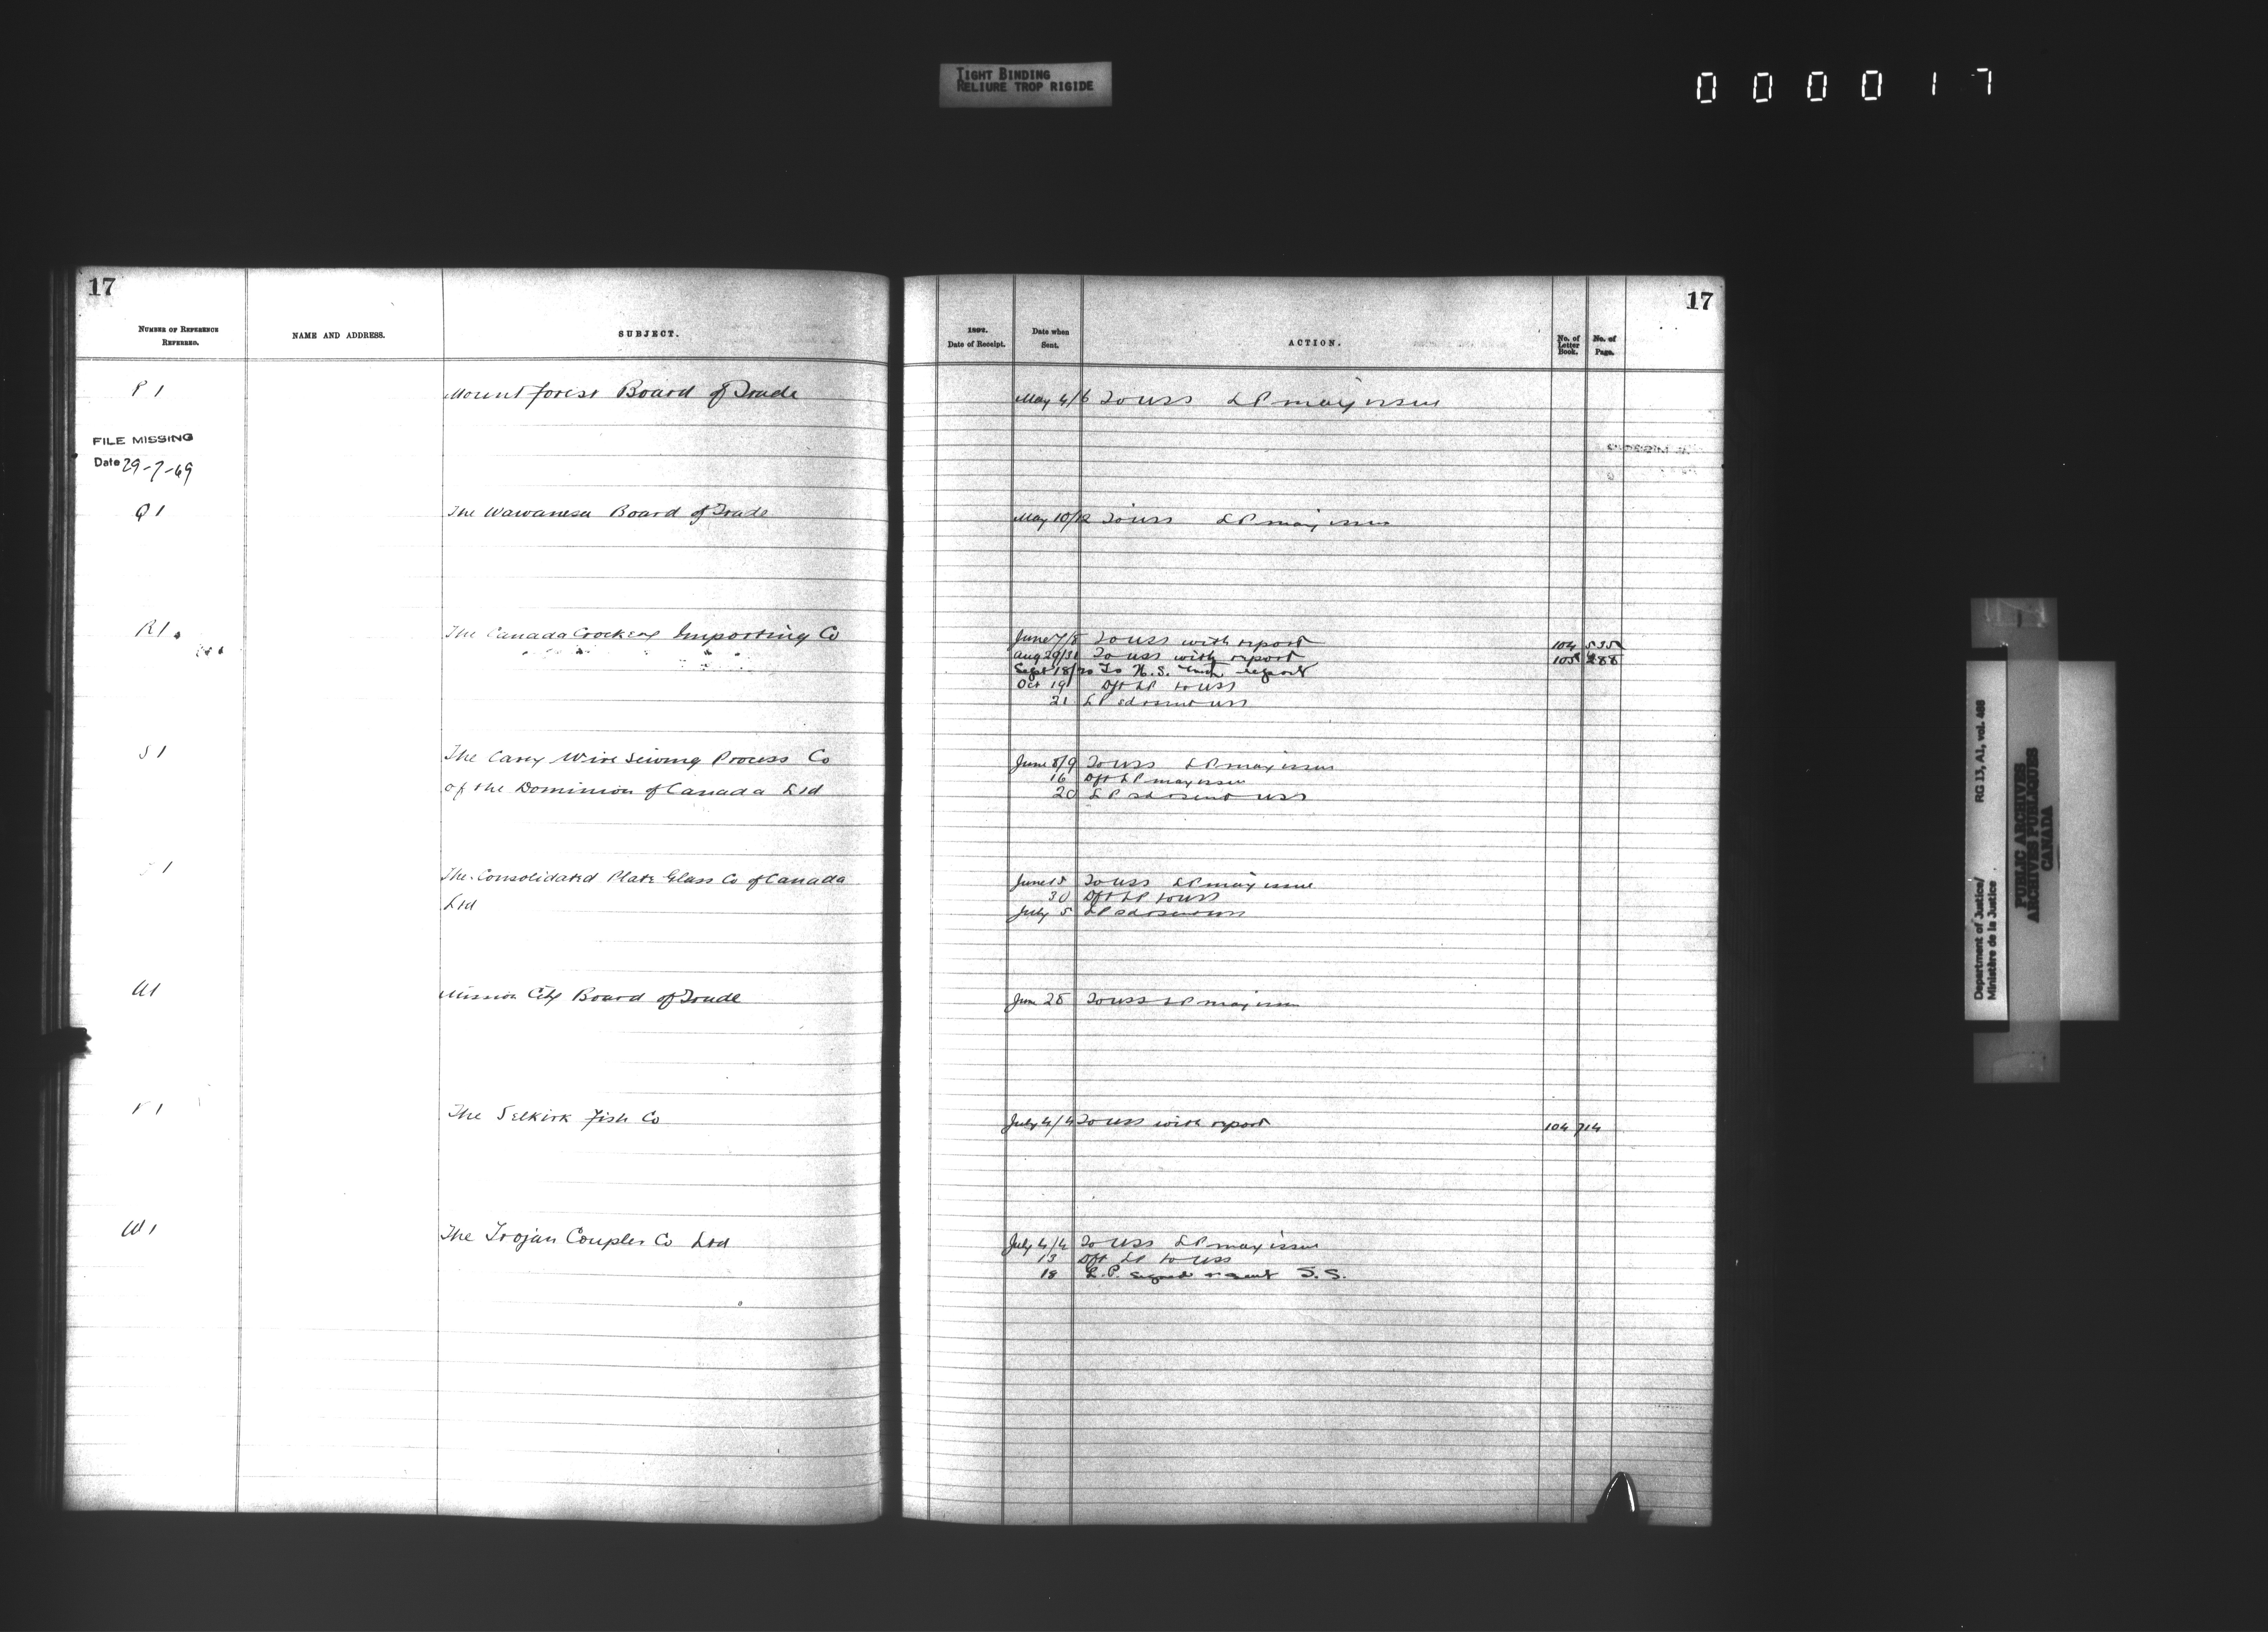 TIGHT BINDING
RELIURE TROP RIGIDE
0 0 0 0 1 7
17
NUMBER OF REFERENCE
REFERRED.
NAME AND ADDRESS.
SUBJECT.
P 1
Mount forest Board of Trade
FILE MISSING
Date 29-7-69
Q 1
The Wawanesa Board of Trade
R 1
The Canada Crockery Importing Co
S 1
The Carey Wire Sewing Process Co
of the Dominion of Canada Ltd
1
The Consolidated Plate Glass Co of Canada
Ltd
U 1
Mission City Board of Trade
V 1
The Selkirk Fish Co
W 1
The Trojan Coupler Co Ltd
17
Date of Receipt.
Date when
Sent.
ACTION.
No. of
Letter
Book.
No. of
Page.
May 4/6 To USS LP may issue
May 10/12 To USS LP may issue
June 7/8 To USS with report 104 535
Aug 29/31 To USS with report 105 288
Sept 18/20 To U.S. with report
Oct 19 Dft LP to USS
21 LP sd & sent USS
June 8/9 To USS LP may issue
16 Dft LP may issue
20 LP sd & sent USS
June 15 To USS LP may issue
30 Dft LP to USS
July 5 LP sd & sent USS
June 28 To USS LP may issue
July 4/4 To USS with report 104 714
July 4/4 To USS LP may issue
13 Dft LP to USS
18 L.P. signed & sent S.S.
Department of Justice/
Ministère de la Justice
RG 13, A1, vol. 488
PUBLIC ARCHIVES
ARCHIVES PUBLIQUES
CANADA